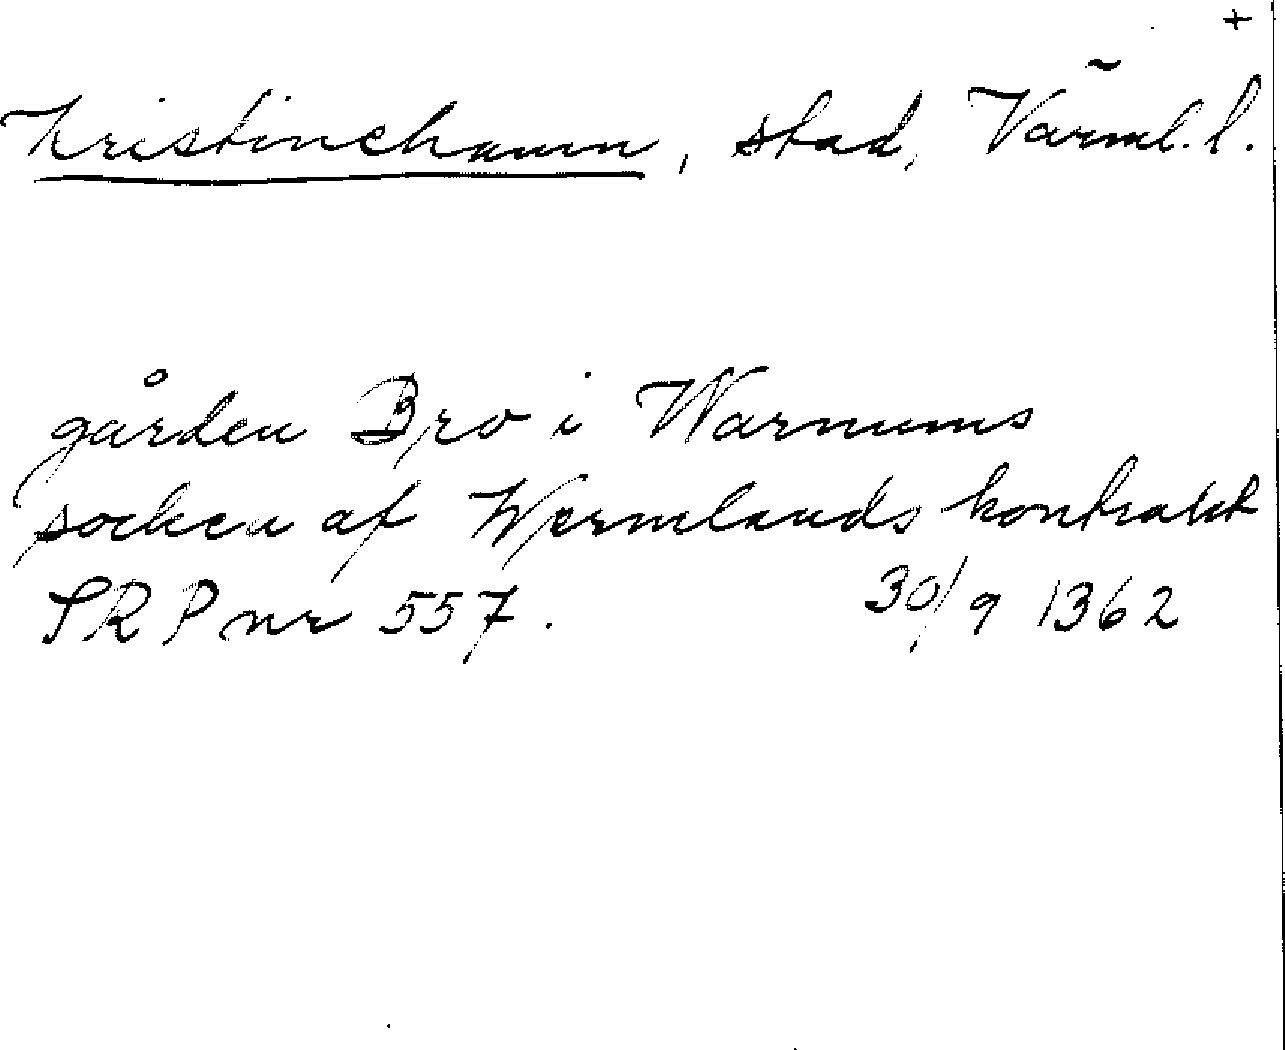 +
Kristinehamn, stad, Värml. l.
gården Bro i Warnums
socken af Wermlands kontrakt
SRP nr 557. 30/9 1362